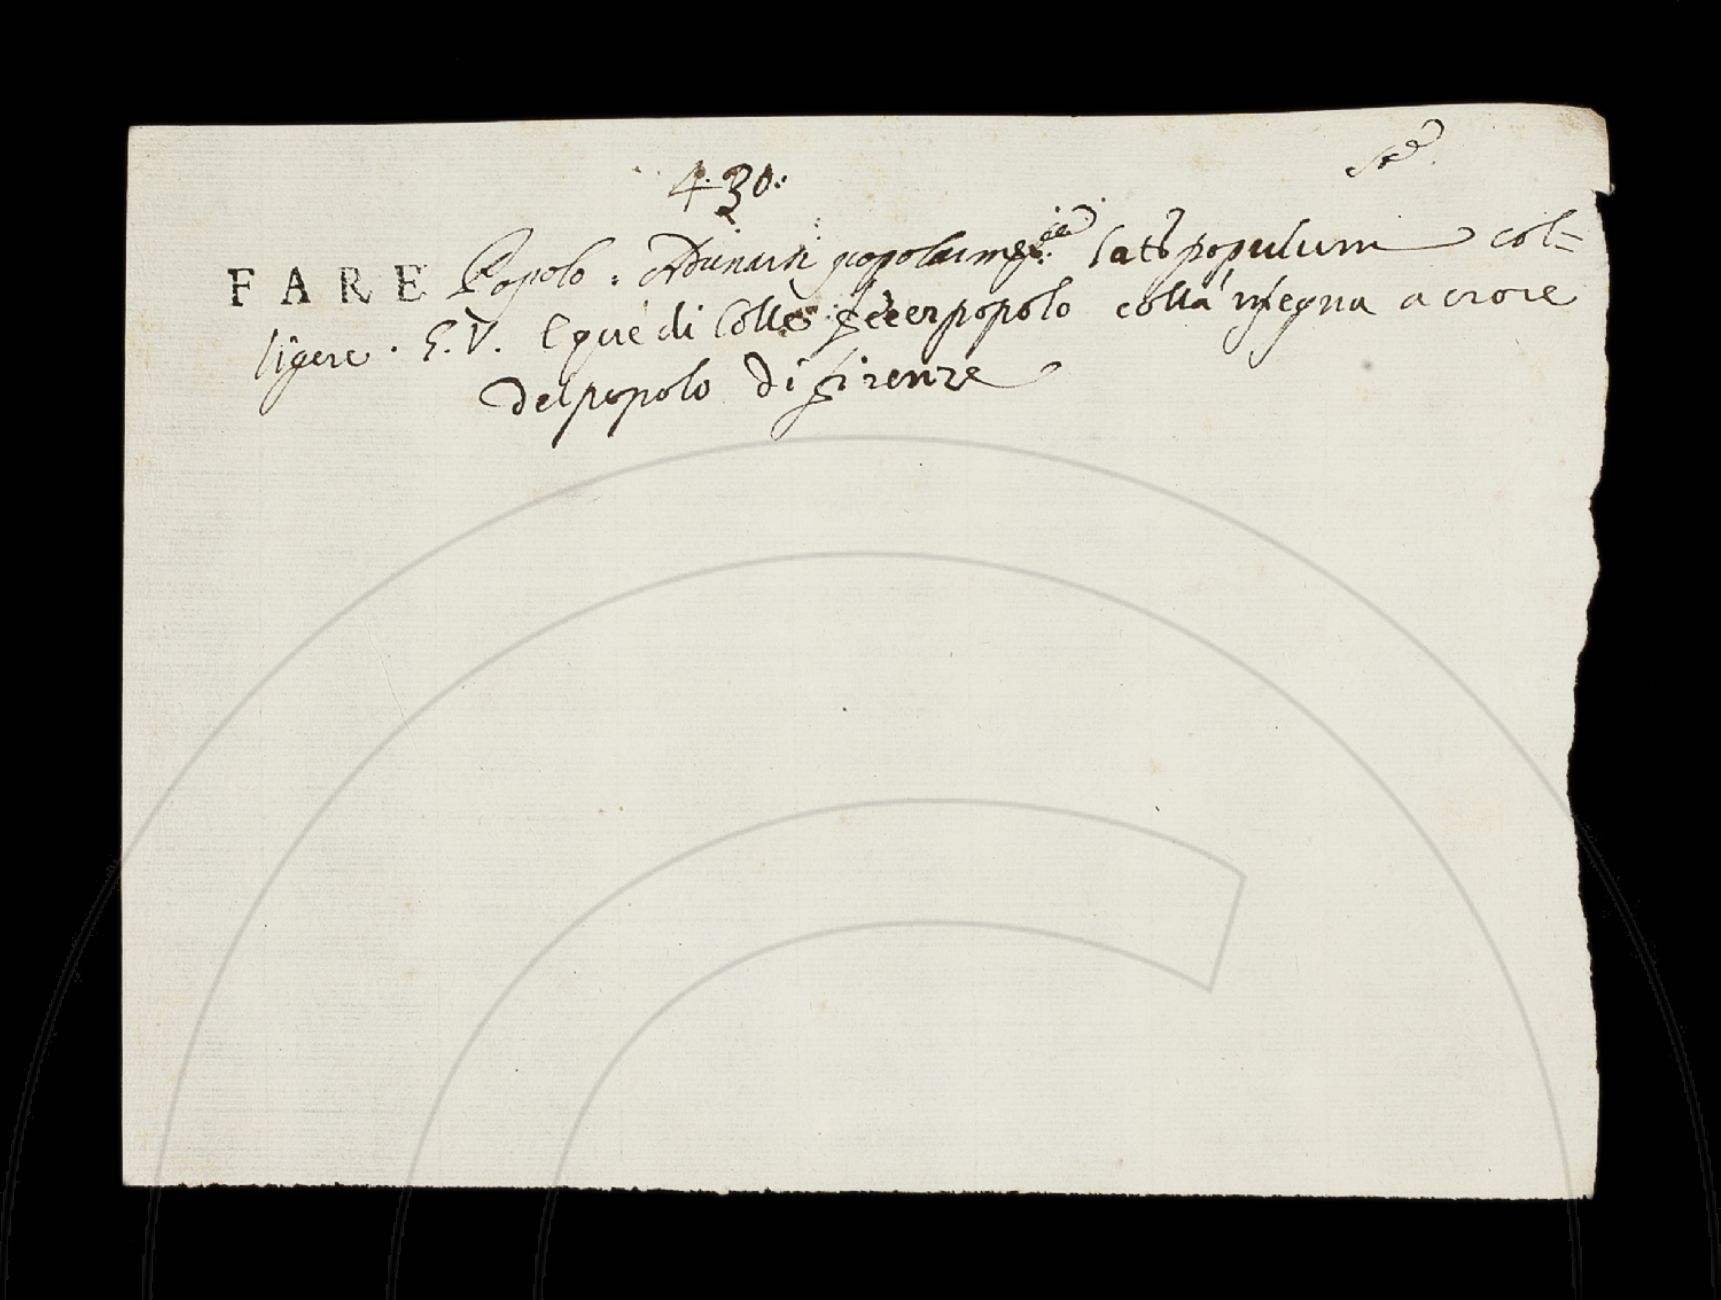 430:
FARE Popolo. Adunarsi popolarme: Lat: populum col=
ligere. G. V. E que di Colle fecer popolo colla insegna a croce
del popolo di Firenze